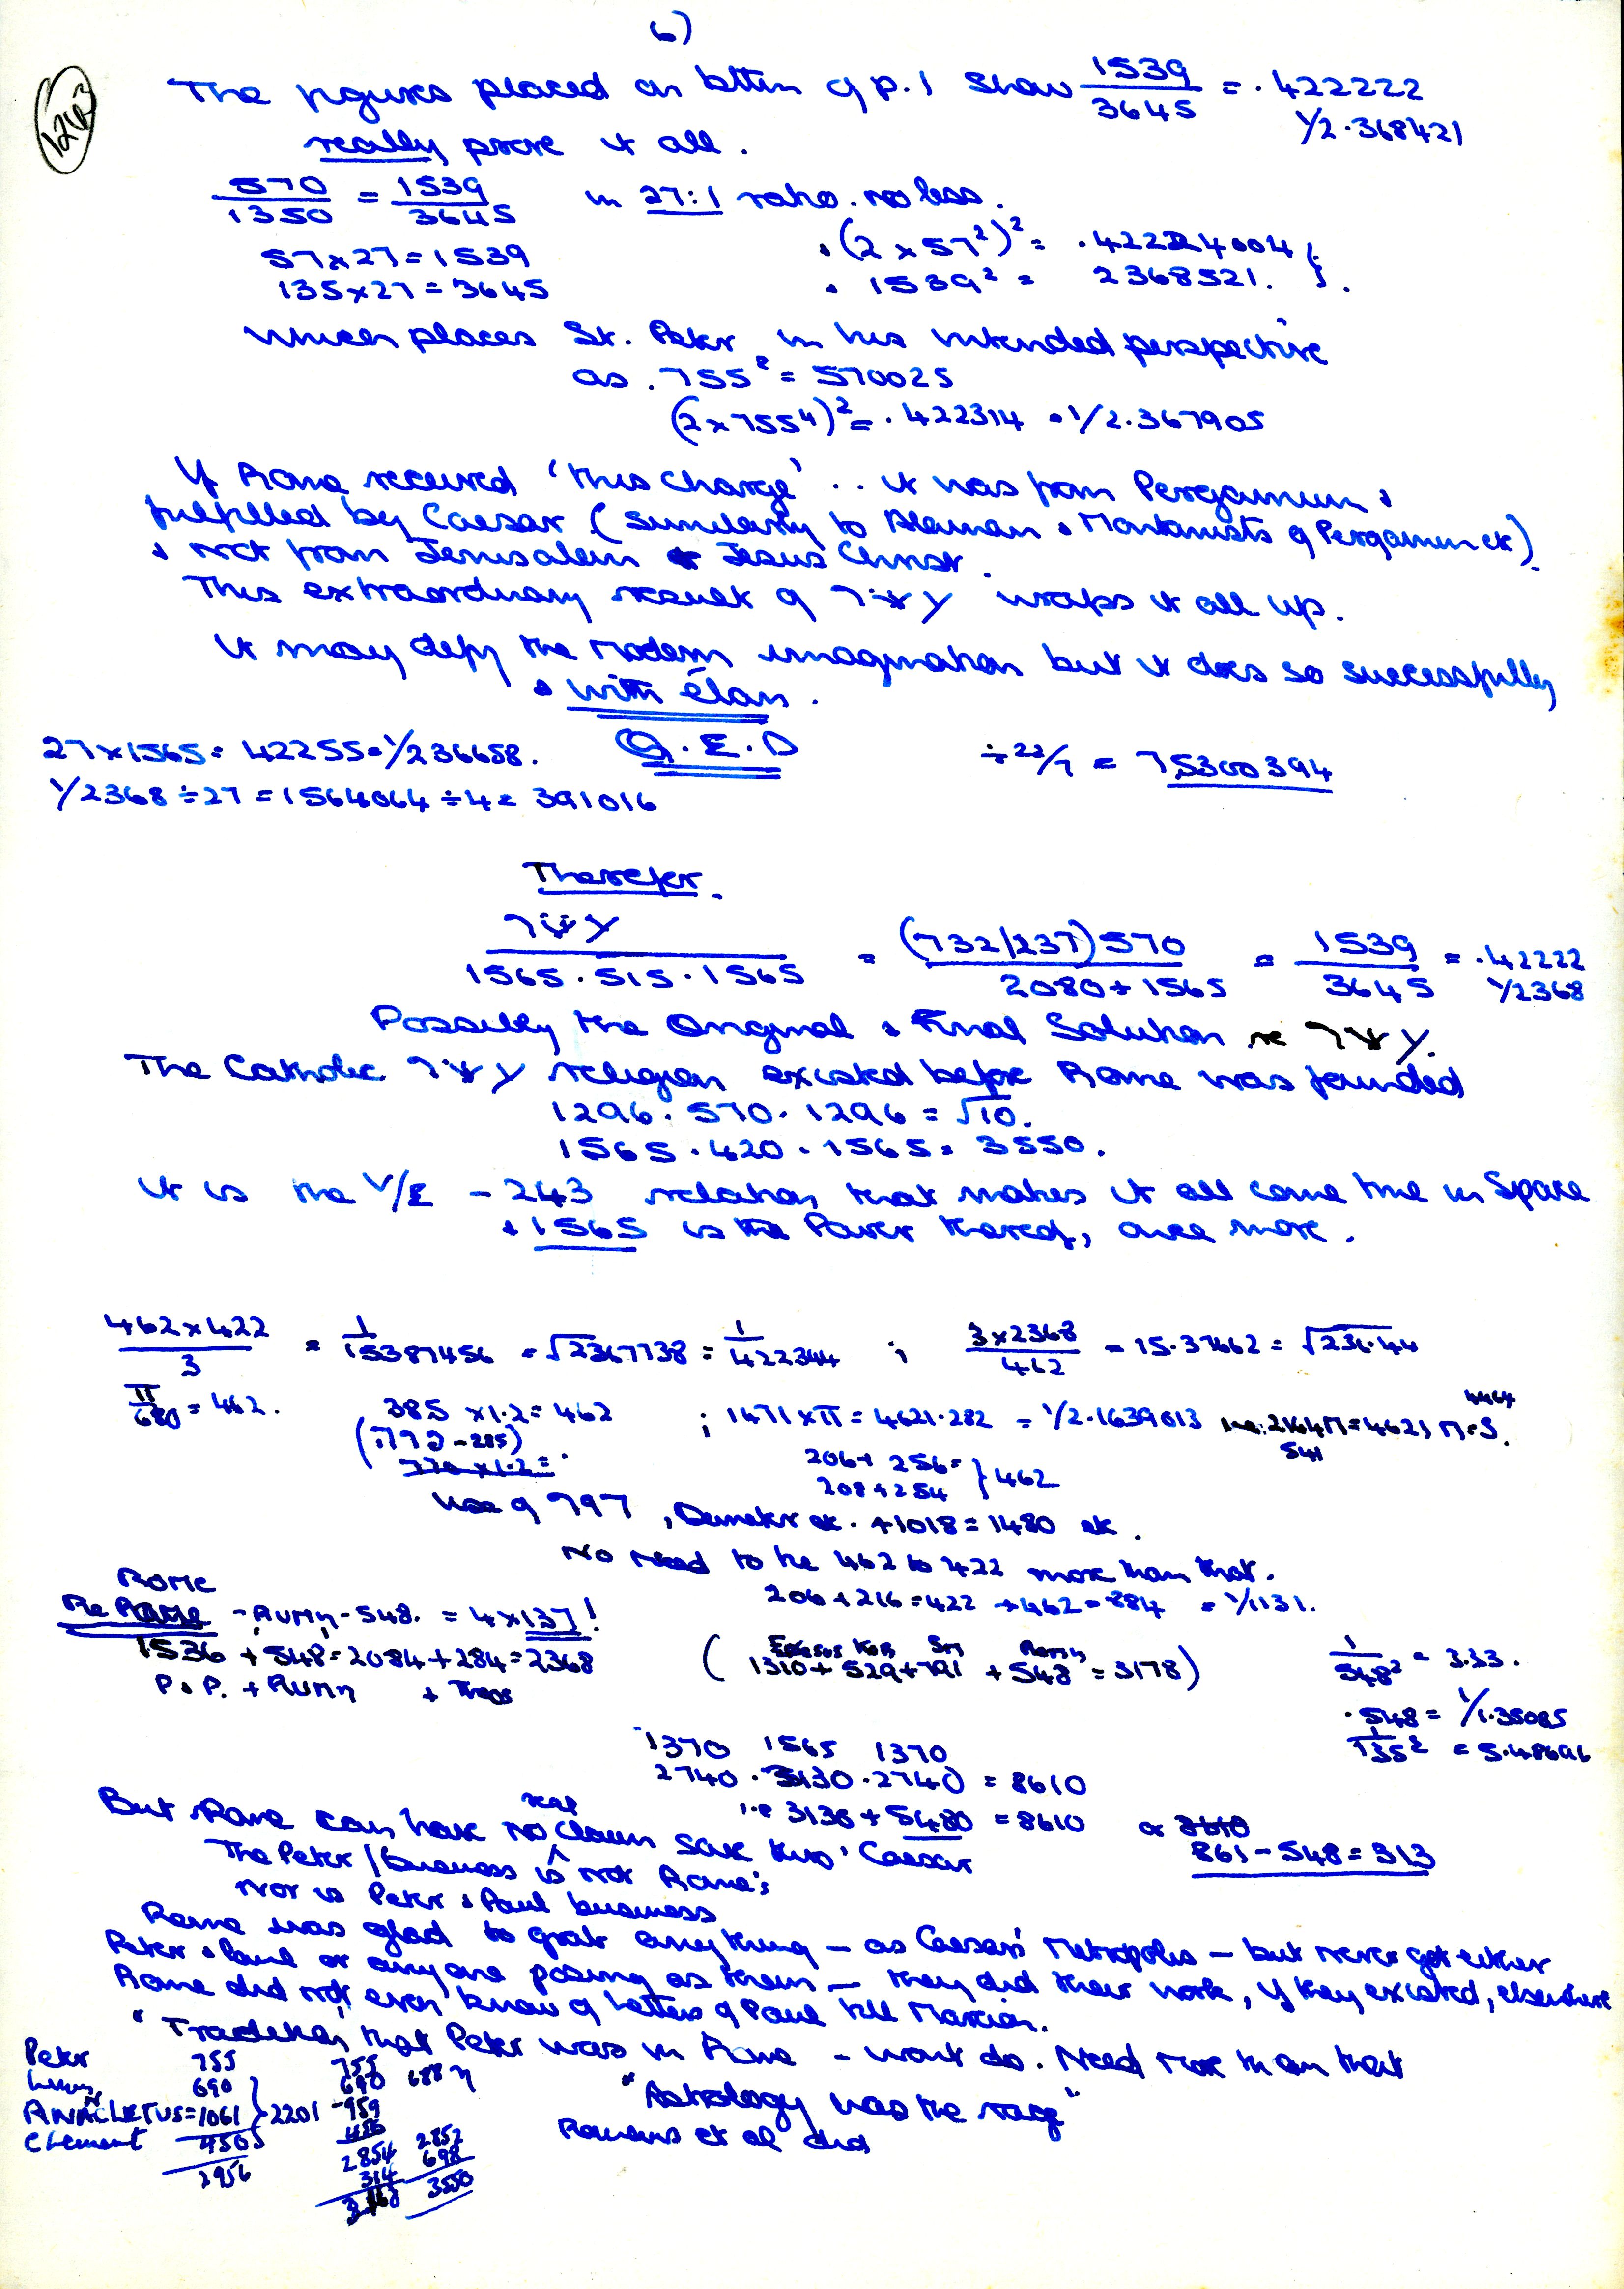 6)
1263
The figures placed on bottom of p. 1 show 1539/3645 = .422222
1/2.368421
really prove it all.
570/1350 = 1539/3645 in 27:1 ratio. no less.
57x27=1539
135x27=3645
(2 x 57²)² = .42224004
1539² = 2368521.
which places St. Peter in his intended perspective
as .755² = 570025
(2x755⁴)² = .422314 = 1/2.367905
If Rome received 'this charge' .. it was from Pergamum
fulfilled by Caesar (similarly to Alaman & Montanists of Pergamum etc)
& not from Jerusalem or Jesus Christ.
This extraordinary result of wraps it all up.
It may defy the modern imagination but it does so successfully
& with élan.
Q.E.D
27x1565= 42255=1/236658.
÷22/7 = 75300394
1/2368÷27=1564064÷4= 391016
Therefor.
/1565.515.1565 = (732/237)570/2080+1565 = 1539/3645 = .42222
1/2368
Possibly the Original & Final Solution re
The Catholic religion existed before Rome was founded
1296. 570. 1296 = √10.
1565. 420. 1565= 3550.
It is the V/E - 243 relation that makes it all come true in Space
+ 1565 is the Power thereof, once more.
462x422/3 = 1/15387456 = √2367738 = 1/422344 ; 3x2368/462 = 15.37662 = √236.44
π/680 = 462.
385 x1.2= 462
; 1471xπ = 4621.282 = 1/2.1639013
206+ 256=
208+254 } 462
use of 797, Demeter etc. +1018=1480 etc.
No need to tie 462 to 422 more than that.
206+216=422 +462=884 = 1/1131.
Rome
Re Rome - - 548. = 4x137!
1536 + 548=2084+284=2368
P & P. + + Theos
(1310+ 529+791 + 548 = 3178)
1/548² = 3.33.
.548 = 1/1.35085
1/135² = 5.48696
1370 1565 1370
2740 . 3130 . 2740 = 8610
i.e 3130 + 5480 = 8610 or 8610
861 - 548 = 313
But Rome can have no real claim save thro' Caesar
The Peter / business is not Rome's
Nor is Peter & Paul business
Rome was glad to grab anything - as Caesars' Metropolis - but never got either
Peter & Paul or anyone posing as them - they did their work, if they existed, elsewhere
Rome did not even know of letters of Paul till Marcion.
"Tradition, that Peter was in Rome - wont do. Need more than that
"Astrology was the rage"
Romans et al did
Peter 755 755
690 690 688
ANACLETUS=1061 } 2201 959
Clement 450
2956
2854 2852
314 698
3550